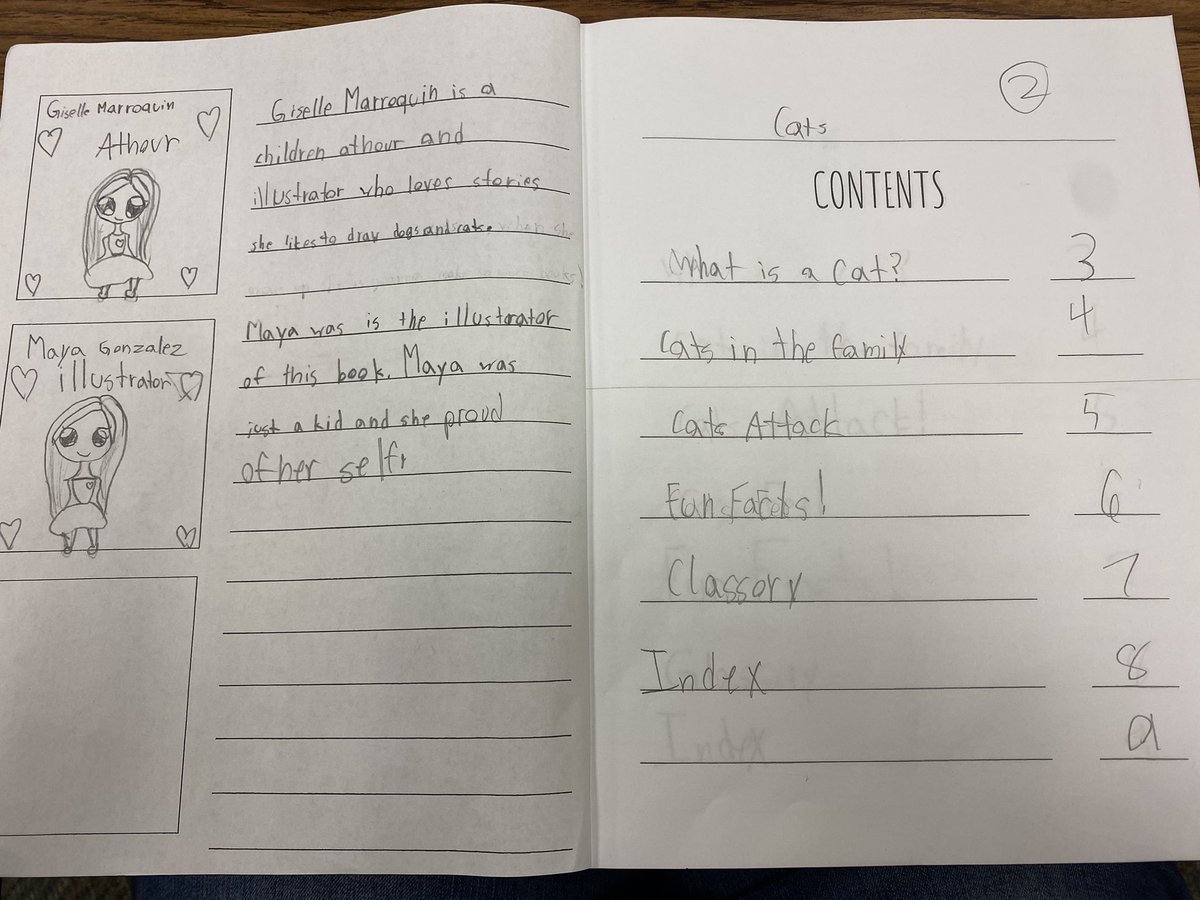 Giselle Marroquin
Athour
Maya Gonzalez
illustrator
Giselle Marroquin is a
children athour and
illustrator who loves stories
she likes to draw dogs and cats.
Maya was is the illustorator
of this book. Maya was
just a kid and she proud
of her self
2
Cats
CONTENTS
What is a Cat? 3
Cats in the family 4
Cats Attack 5
Fun Facts! 6
Classory 7
Index 8
9